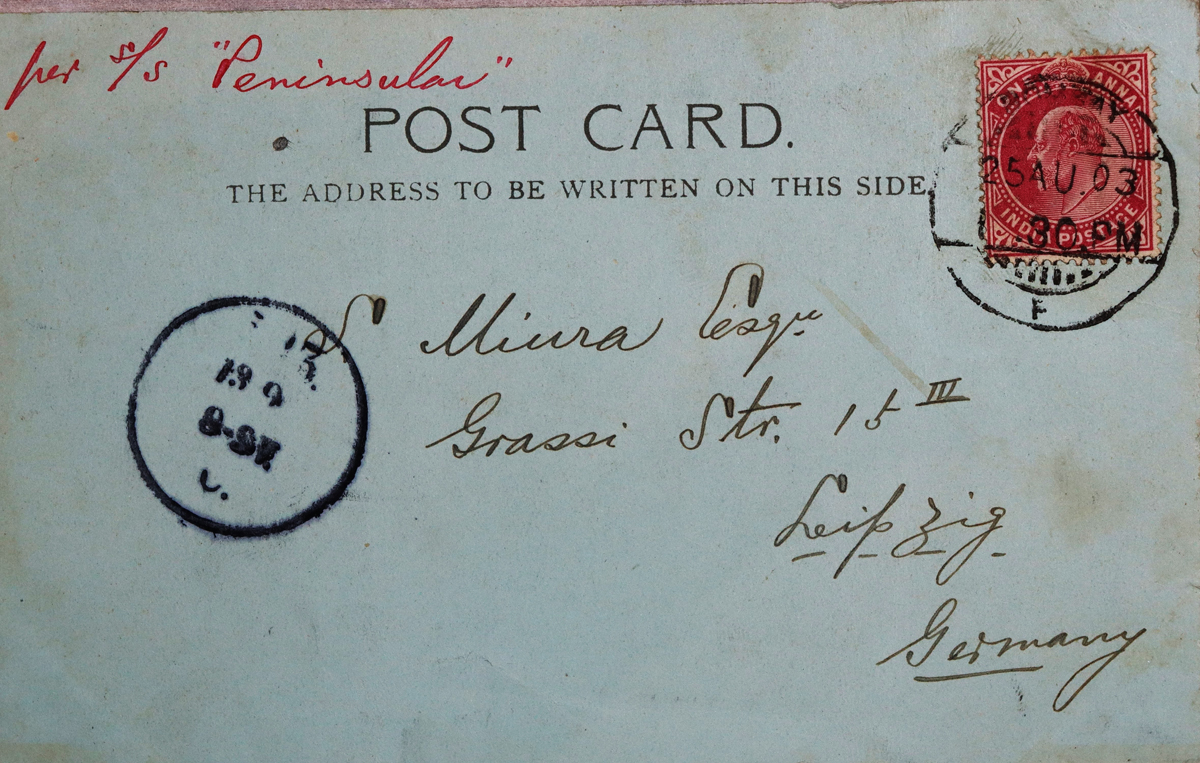 per s/s "Peninsular"
POST CARD.
THE ADDRESS TO BE WRITTEN ON THIS SIDE
ONE ANNA
25 AU. 03
.30 PM
INDIA POSTAGE
F
S Miura Esqre
Grassi Str. 15 III
Leipzig
Germany
13 9